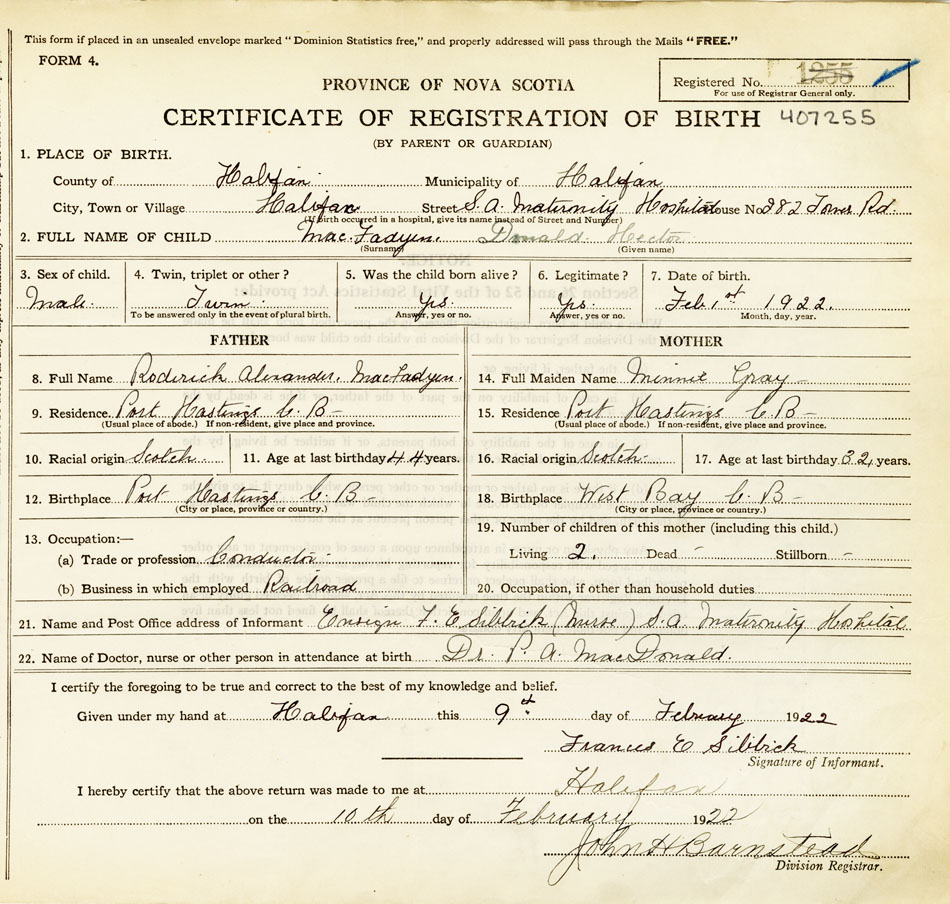 This form if placed in an unsealed envelope marked "Dominion Statistics free," and properly addressed will pass through the Mails "FREE."
FORM 4.
Registered No. 1255
For use of Registrar General only.
PROVINCE OF NOVA SCOTIA
CERTIFICATE OF REGISTRATION OF BIRTH 407255
(BY PARENT OR GUARDIAN)
1. PLACE OF BIRTH.
County of Halifax Municipality of Halifax
City, Town or Village Halifax Street S. A. Maternity Hospital House No 282 Tower Rd.
(If birth occurred in a hospital, give its name instead of Street and Number)
2. FULL NAME OF CHILD MacFadyen. Donald Hector
(Surname) (Given name)
3. Sex of child. 4. Twin, triplet or other? 5. Was the child born alive? 6. Legitimate? 7. Date of birth.
Male. Twin. Yes. Yes. Feb. 1st 1922.
To be answered only in the event of plural birth. Answer, yes or no. Answer, yes or no. Month, day, year.
FATHER
8. Full Name Roderick Alexander. MacFadyen.
9. Residence. Port Hastings C. B -
(Usual place of abode.) If non-resident, give place and province.
10. Racial origin Scotch. 11. Age at last birthday 44 years.
12. Birthplace Port Hastings C. B -
(City or place, province or country.)
13. Occupation:—
(a) Trade or profession Conductor
(b) Business in which employed Railroad
MOTHER
14. Full Maiden Name Minnie Gray -
15. Residence Port Hastings C. B -
(Usual place of abode.) If non-resident, give place and province.
16. Racial origin Scotch. 17. Age at last birthday 32, years.
18. Birthplace West Bay C. B -
(City or place, province or country.)
19. Number of children of this mother (including this child.)
Living 2. Dead - Stillborn -
20. Occupation, if other than household duties
21. Name and Post Office address of Informant Ensign F. E Sibbick (Nurse) S. A. Maternity Hospital
22. Name of Doctor, nurse or other person in attendance at birth Dr. P. A. MacDonald.
I certify the foregoing to be true and correct to the best of my knowledge and belief.
Given under my hand at Halifax this 9th day of February 1922
Frances E Sibbick
Signature of Informant.
I hereby certify that the above return was made to me at Halifax
on the 10th day of February 1922
John H Barnstead
Division Registrar.